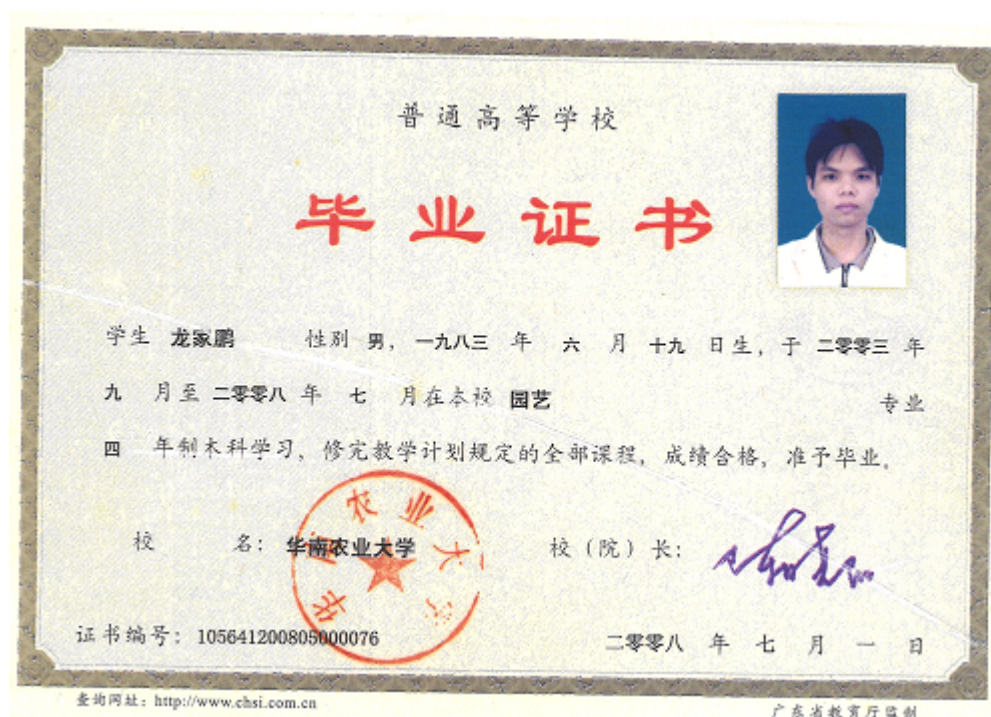 普通高等学校
毕业证书
学生 龙家鹏 性别 男，一九八三 年 六 月 十九 日生，于 二零零三 年
九 月至 二零零八 年 七 月在本校 园艺 专业
四 年制本科学习，修完教学计划规定的全部课程，成绩合格，准予毕业。
校 名：华南农业大学 校（院）长：
华南农业大学
证书编号：105641200805000076 二零零八 年 七 月 一 日
查询网址：http://www.chsi.com.cn 广东省教育厅监制